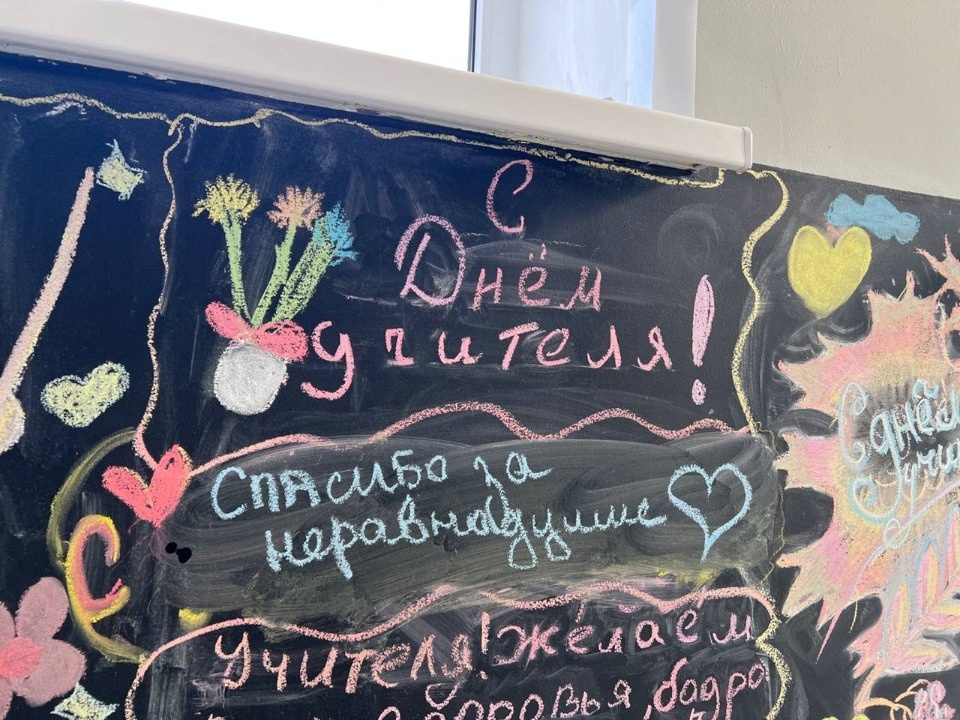 С
Днём
учителя!
Спасибо за
неравнодушие
Учителя! Желаем
здоровья, бодро
С днём
учи
С